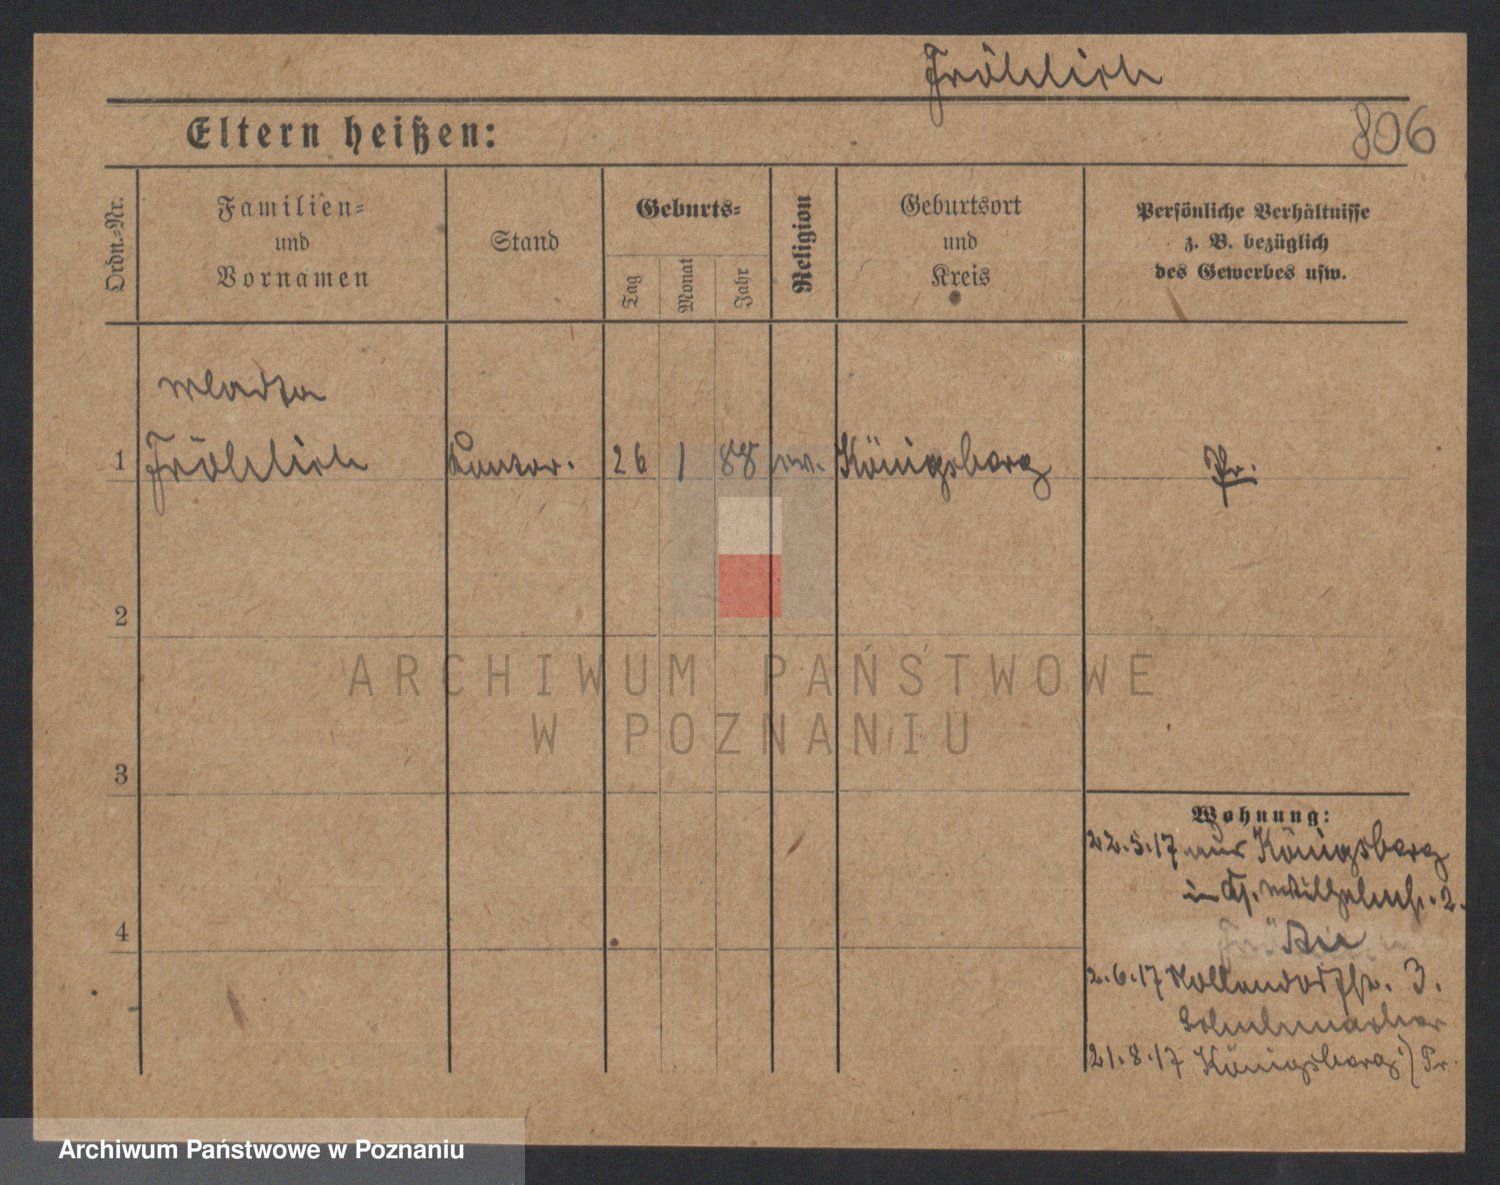 Fröhlich
Eltern heißen:
806
Ordn.=Nr.
Familien=
und
Vornamen
Stand
Geburts=
Tag
Monat
Jahr
Religion
Geburtsort
und
Kreis
Persönliche Verhältnisse
z. B. bezüglich
des Gewerbes usw.
1 Fröhlich Kontor. 26 1 88 ev. Königsberg Pr.
2
3
4
Wohnung:
22.5.17 aus Königsberg
in Wilhelmstr. 2.
2.6.17 Nollendorfstr. 3.
Schuhmacher
21.8.17 Königsberg i/Pr.
ARCHIWUM PAŃSTWOWE
W POZNANIU
Archiwum Państwowe w Poznaniu